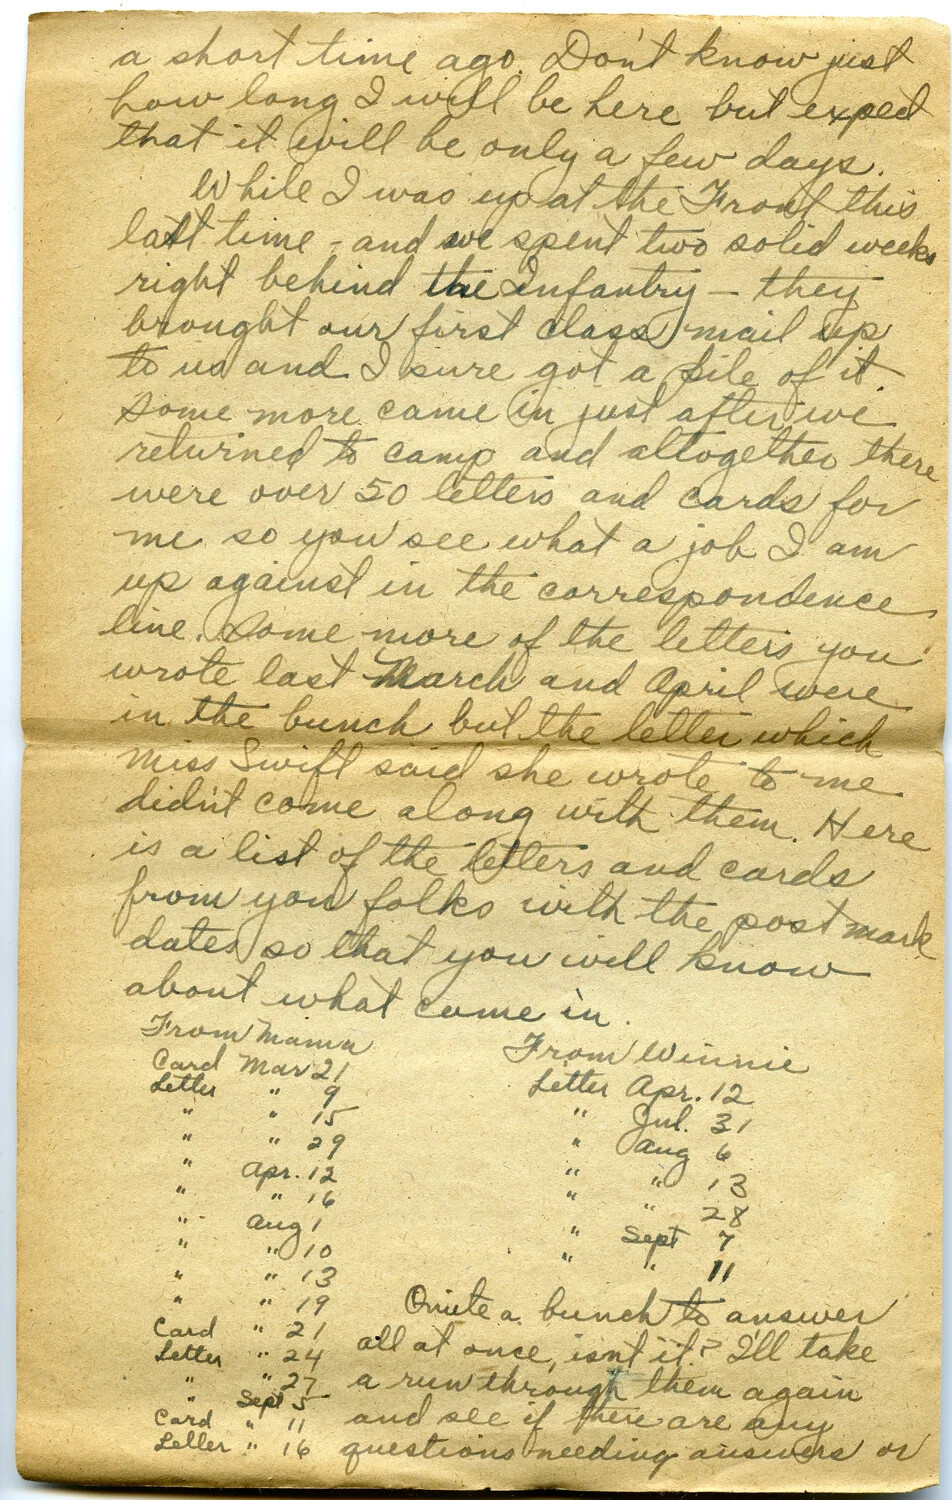 a short time ago. Don't know just
how long I will be here but expect
that it will be only a few days.
While I was up at the Front this
last time - and we spent two solid weeks
right behind the Infantry - they
brought our first class mail up
to us and I sure got a pile of it.
Some more came in just after we
returned to camp and altogether there
were over 50 letters and cards for
me so you see what a job I am
up against in the correspondence
line. Some more of the letters you
wrote last March and April were
in the bunch but the letter which
Miss Swift said she wrote to me
didn't come along with them. Here
is a list of the letters and cards
from you folks with the post mark
dates so that you will know
about what come in.
From Mama
Card Mar 21
Letter " 9
" " 15
" " 29
" Apr. 12
" " 16
" Aug 1
" " 10
" " 13
" " 19
Card " 21
Letter " 24
" " 27
" Sept 5
Card " 11
Letter " 16
From Winnie
Letter Apr. 12
" Jul. 31
" Aug 6
" " 13
" " 28
" Sept 7
" " 11
Quite a bunch to answer
all at once, isn't it? I'll take
a run through them again
and see if there are any
questions needing answers or